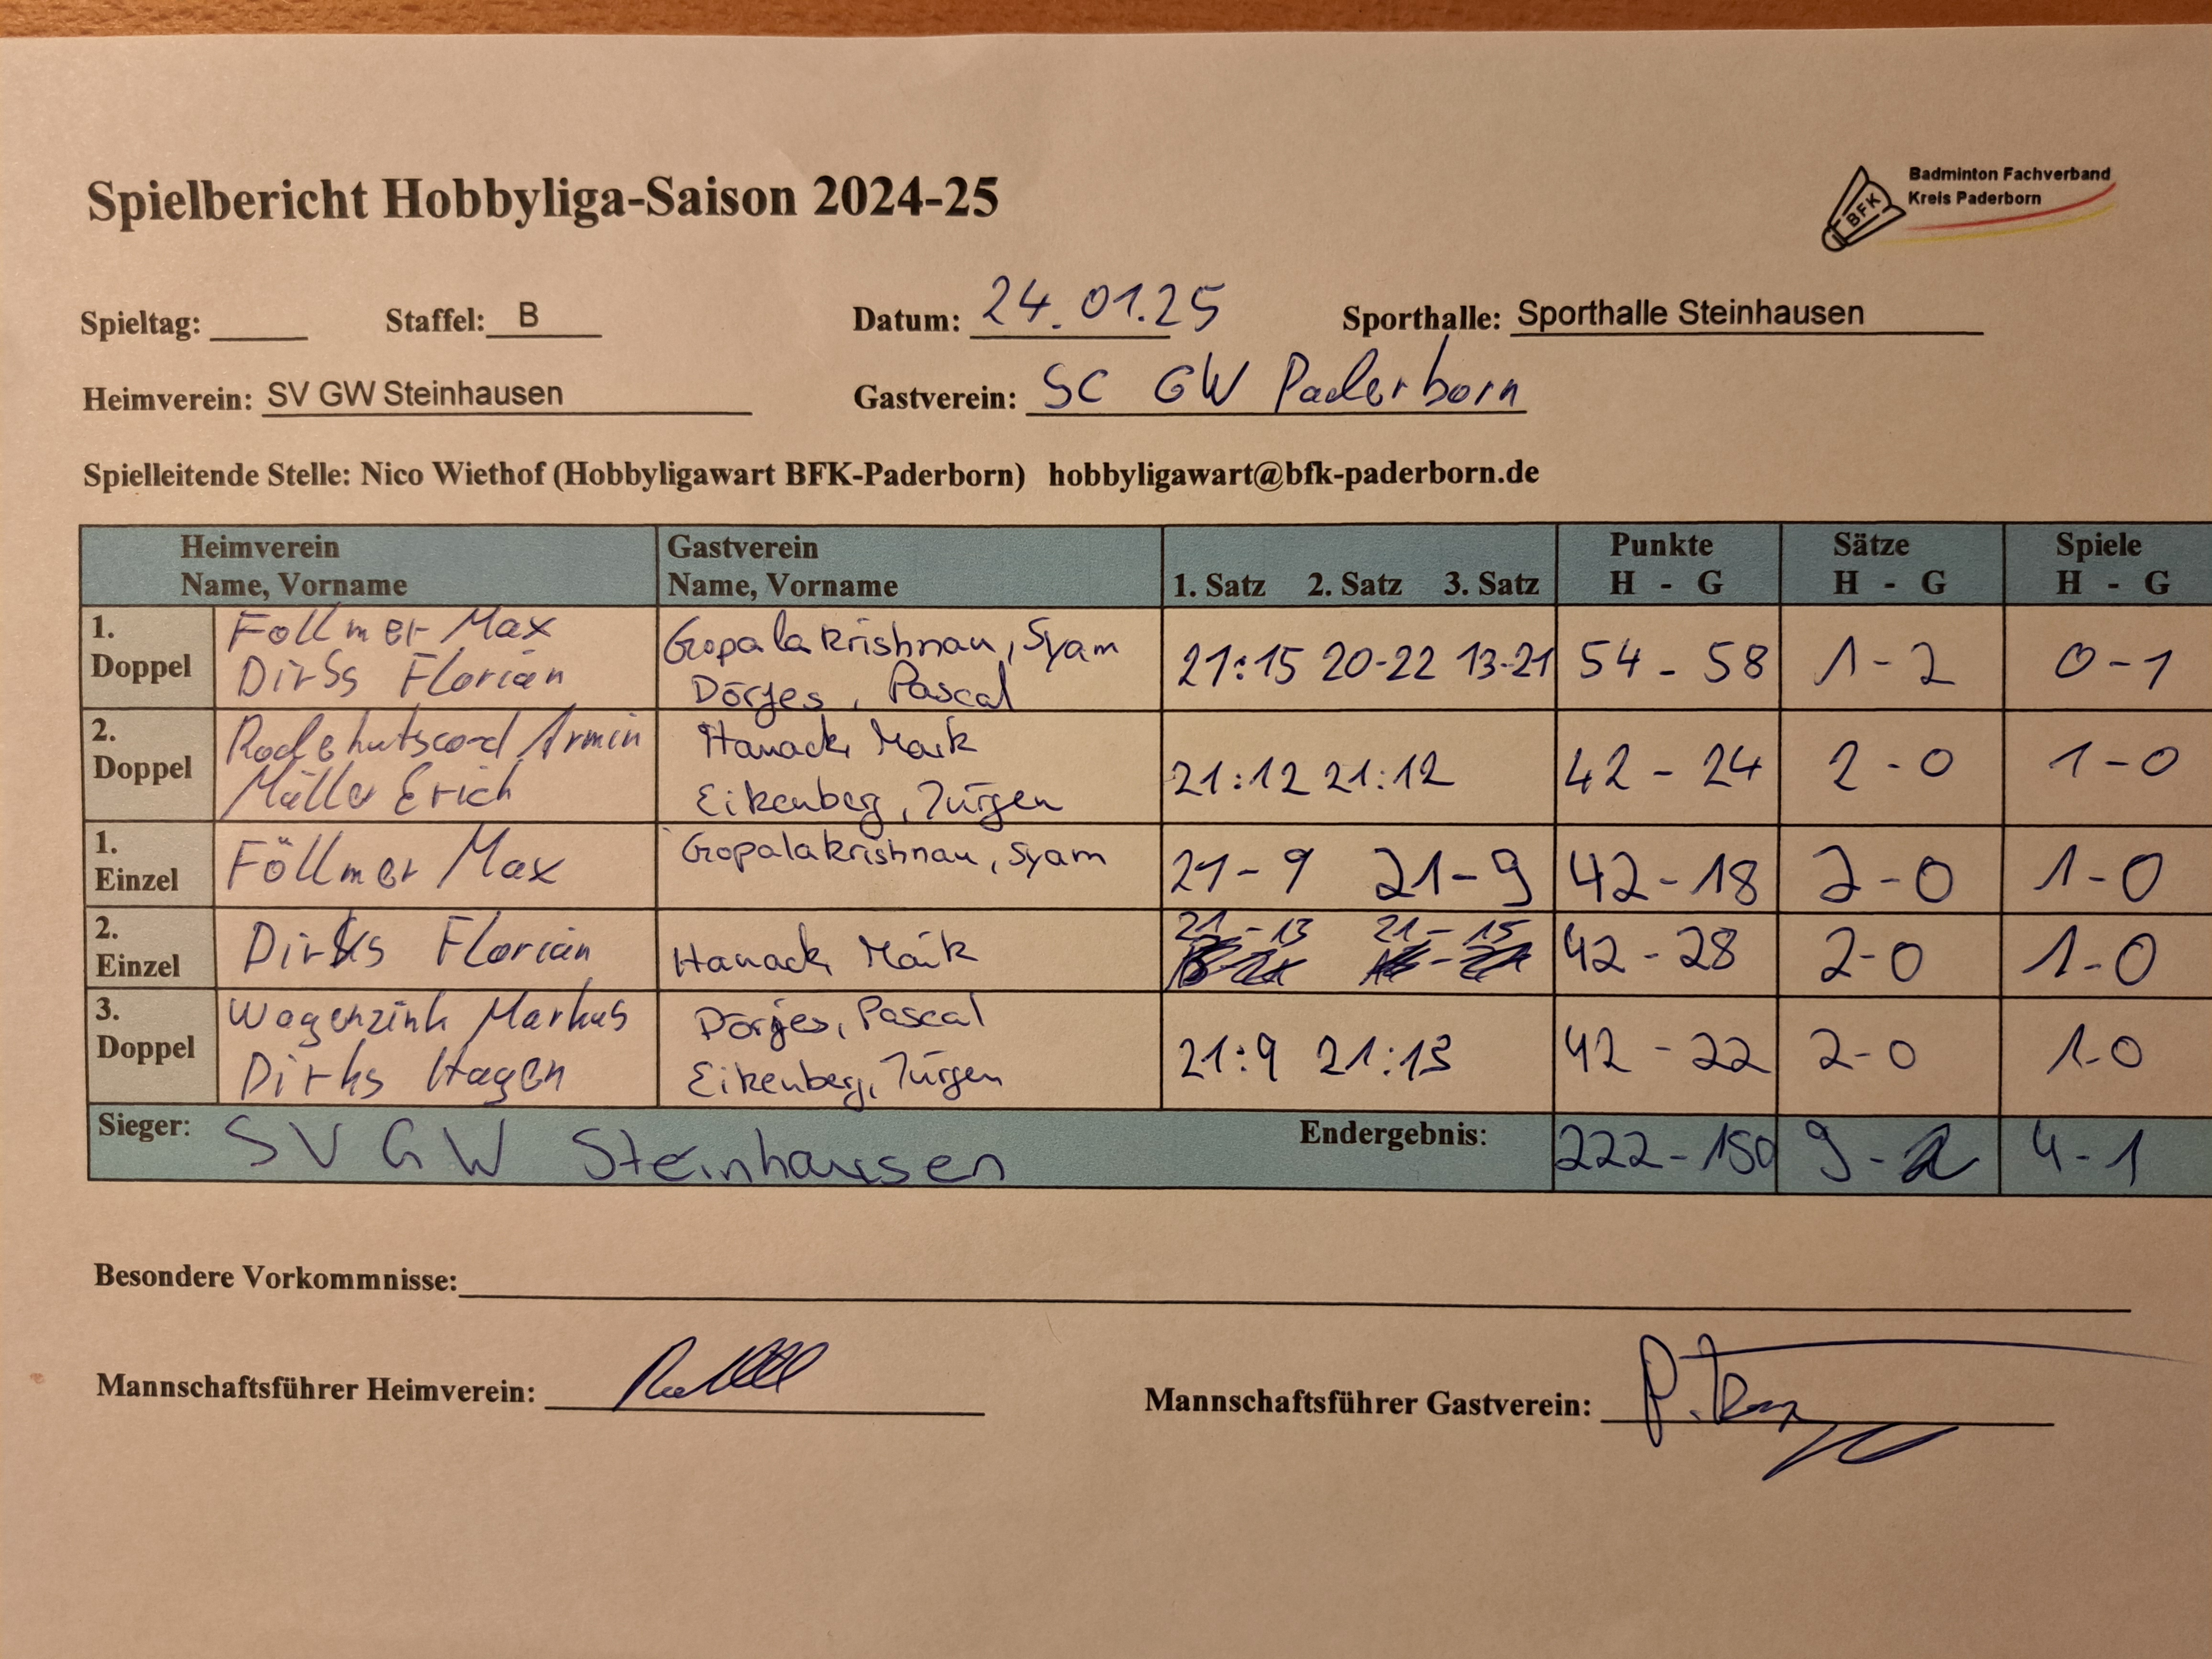 Spielbericht Hobbyliga-Saison 2024-25
Badminton Fachverband
Kreis Paderborn
BFK
Spieltag: Staffel: B Datum: 24.01.25 Sporthalle: Sporthalle Steinhausen
Heimverein: SV GW Steinhausen Gastverein: SC GW Paderborn
Spielleitende Stelle: Nico Wiethof (Hobbyligawart BFK-Paderborn) hobbyligawart@bfk-paderborn.de
Heimverein Gastverein Punkte Sätze Spiele
Name, Vorname Name, Vorname 1. Satz 2. Satz 3. Satz H - G H - G H - G
1. Doppel
Föllmer Max
Dirks Florian
Gopalakrishnan, Syam
Dörjes, Pascal
21:15 20-22 13-21 54 - 58 1-2 0-1
2. Doppel
Radehutscord Armin
Müller Erich
Hanack, Maik
Eikenberg, Jürgen
21:12 21:12 42 - 24 2-0 1-0
1. Einzel
Föllmer Max
Gopalakrishnan, Syam
21-9 21-9 42-18 2-0 1-0
2. Einzel
Dirks Florian
Hanack, Maik
21-13 21-15 42-28 2-0 1-0
3. Doppel
Wagenzink Markus
Dirks Hagen
Dörjes, Pascal
Eikenberg, Jürgen
21:9 21:13 42 - 22 2-0 1-0
Sieger: SV GW Steinhausen Endergebnis: 222-150 9-2 4-1
Besondere Vorkommnisse:
Mannschaftsführer Heimverein:
Mannschaftsführer Gastverein: